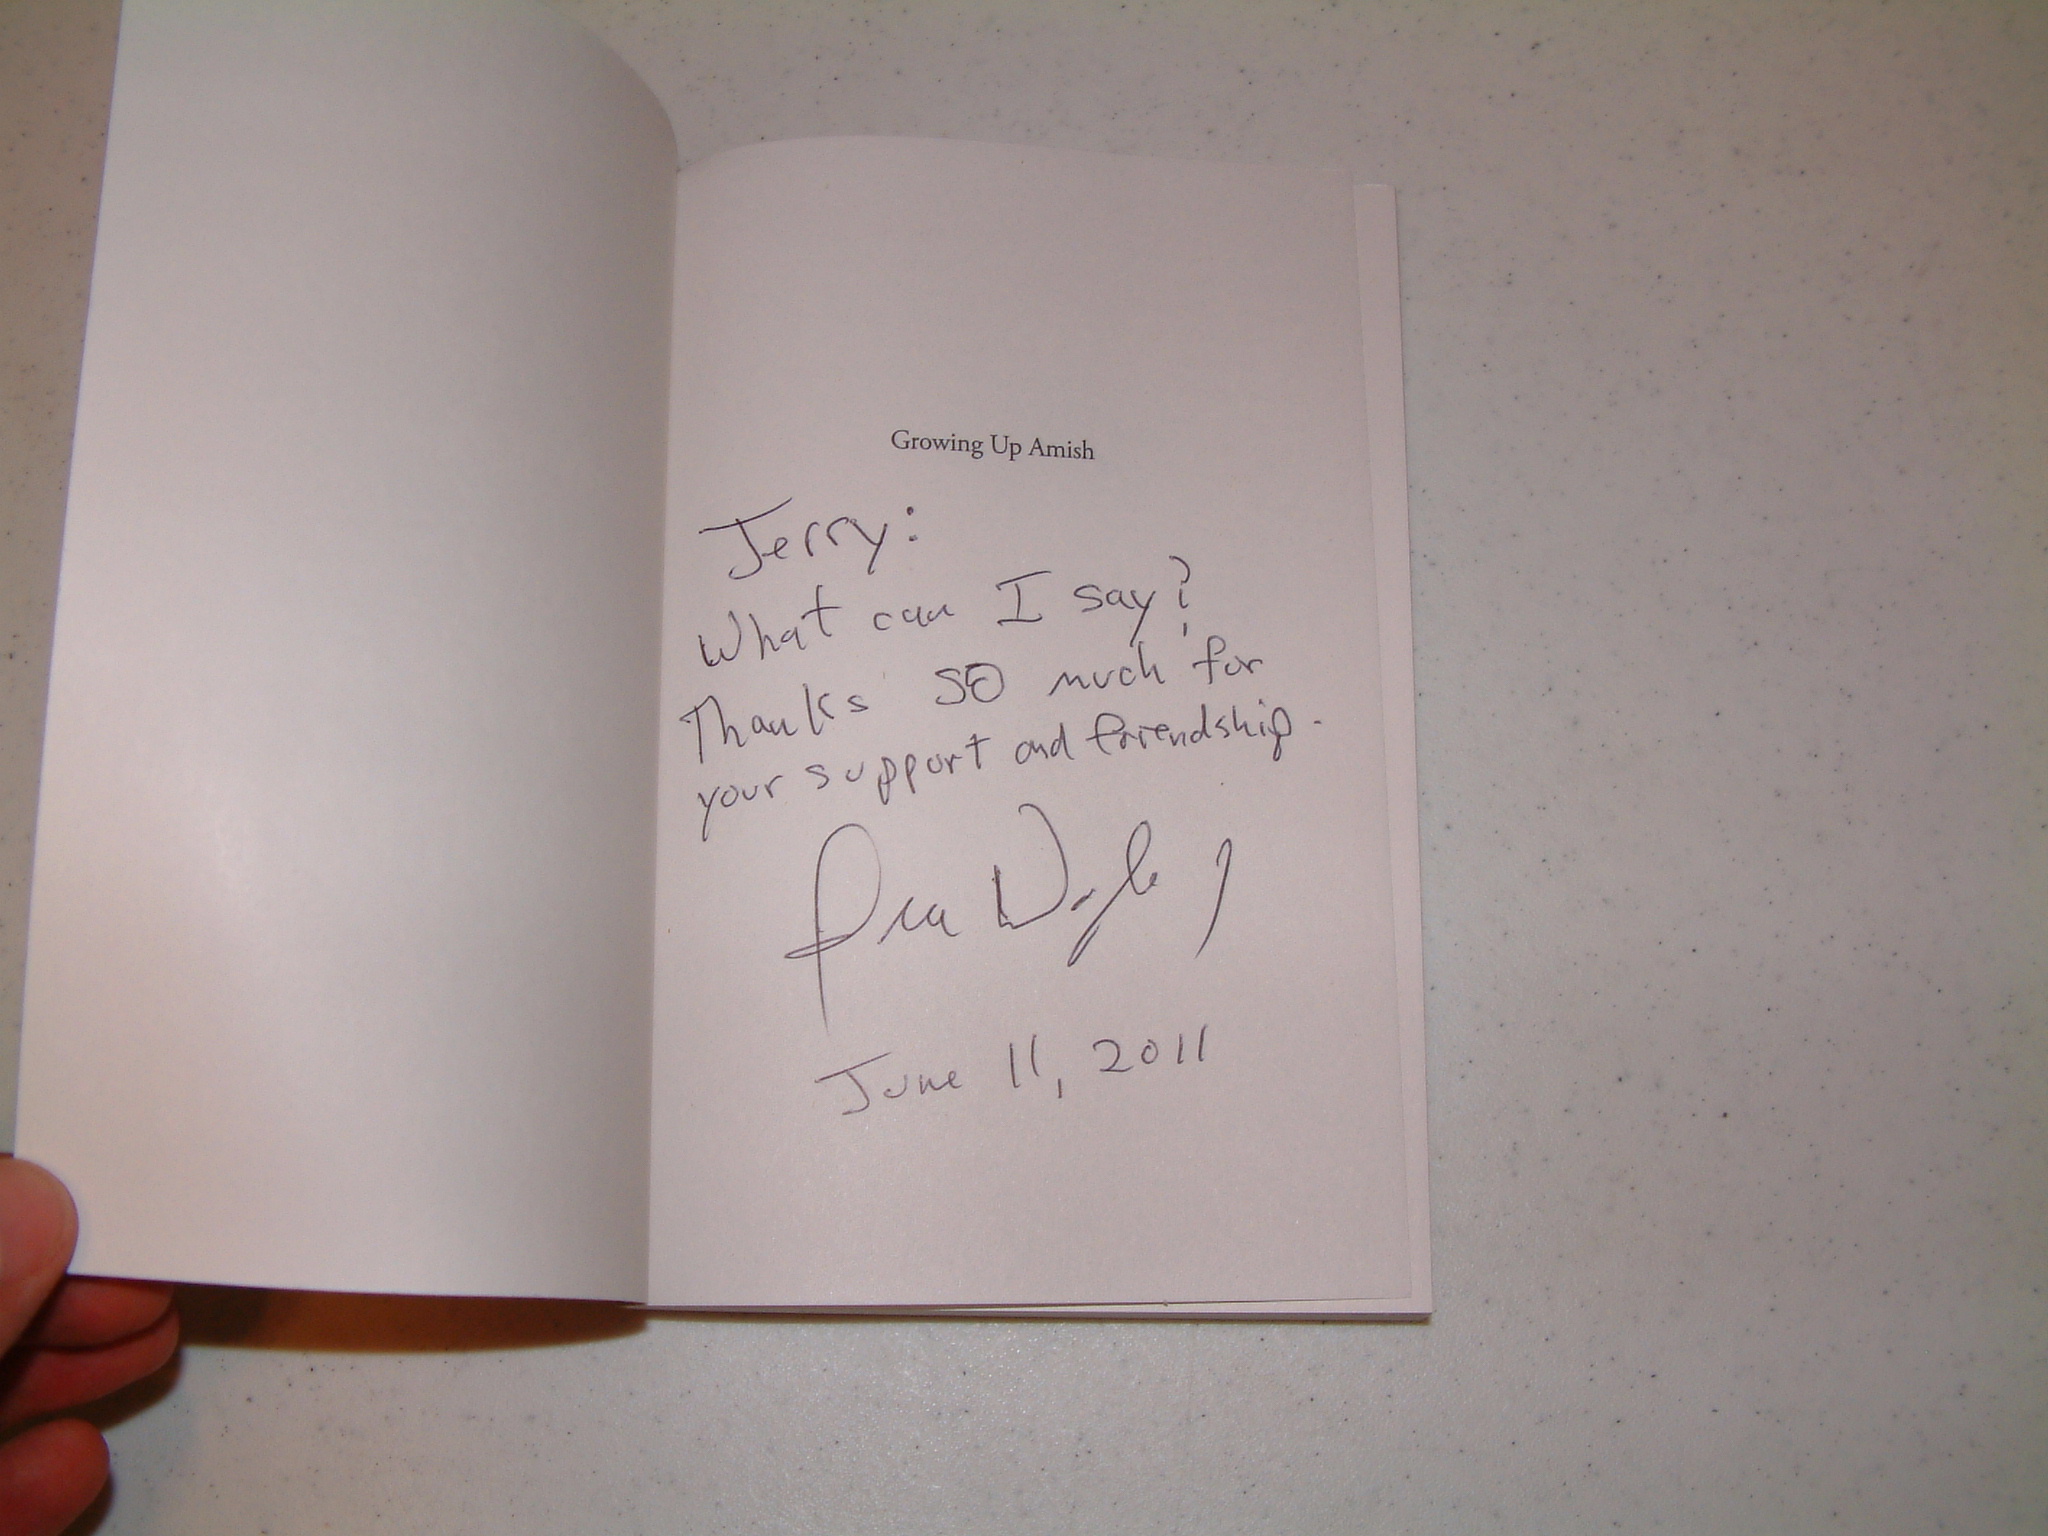 Growing Up Amish
Jerry:
What can I say?
Thanks SO much for
your support and friendship.
Ira Wagler
June 11, 2011